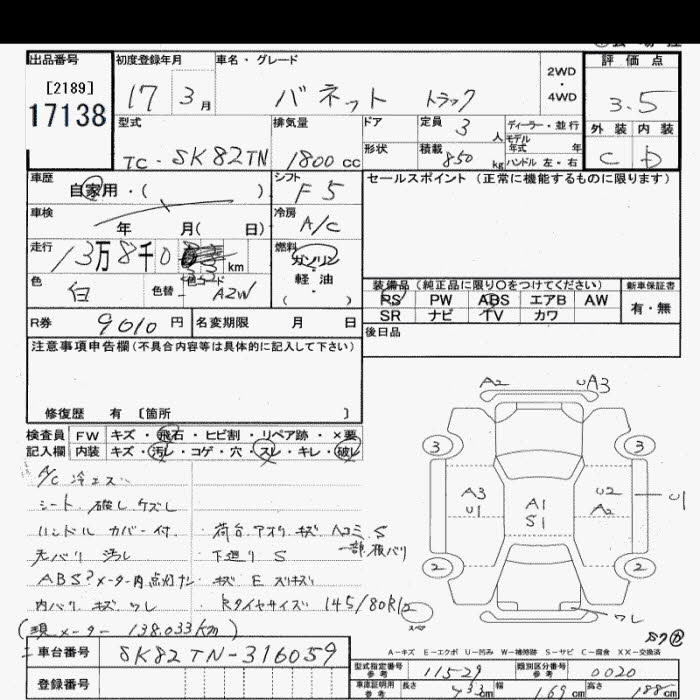 出品番号
[2189]
17138
初度登録年月
17 3月
車名・グレード
バネット トラック
2WD
・
4WD
評価点
3.5
外装 内装
C D
型式
TC-SK82TN
排気量
1800 cc
ドア
定員 3人
形状
積載 850 kg
ディーラー・並行
モデル
年式 年
ハンドル 左・右
車歴
自家用・( )
シフト
F5
セールスポイント (正常に機能するものに限ります)
車検
年 月( 日)
冷房
A/C
走行
13万8千0 km
燃料
ガソリン
軽油
( )
色
白
色替
色コード
A2W
装備品(純正品に限り〇をつけてください)
PS PW ABS エアB AW
SR ナビ TV カワ
新車保証書
有・無
R券 9010円
名変期限 月 日
後日品
注意事項申告欄(不具合内容等は具体的に記入して下さい)
修復歴 有 〔箇所 〕
検査員
記入欄
FW キズ・飛石・ヒビ割・リペア跡・×要
内装 キズ・汚レ・コゲ・穴・スレ・キレ・破レ
A/C 冷エズ
シート 破レ ケズレ
ハンドル カバー付
天バリ 汚レ
ABS?メーター内点灯ナシ
内バリ キズ ワレ
(現メーター 138.033km)
荷台アオリ キズ Aコミ S
一部板バリ
下廻り S
キズ E
Rタイヤサイズ 145/80R12
スペア
A2 UA3
3 3
A3
U1
A1
S1
U2
A2
U1
2 2
ワレ
A-キズ E-エクボ U-凹み W-補修跡 S-サビ C-腐食 XX-交換済
車台番号 SK82TN-316059
登録番号
型式指定番号
参考
11529
類別区分番号
参考
0020
車庫証明用
参考
長さ 433cm
幅 169cm
高さ 188cm